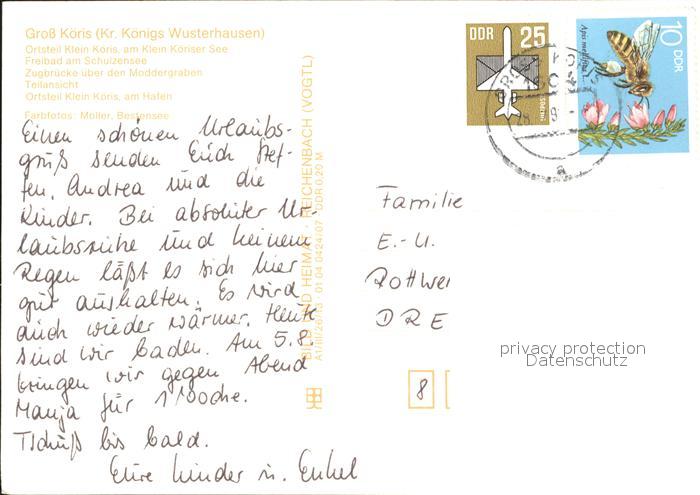 Groß Köris (Kr. Königs Wusterhausen)
Ortsteil Klein Köris, am Klein Köriser See
Freibad am Schulzensee
Zugbrücke über den Moddergraben
Teilansicht
Ortsteil Klein Köris, am Hafen
Farbfotos: Müller, Bestensee
Einen schönen Urlaubs-
gruß senden Euch Stef-
fen, Andrea und die
Kinder. Bei absoluter Ur-
laubsruhe und keinem
Regen läßt es sich hier
gut aushalten. Es wird
auch wieder wärmer. Heute
sind wir baden. Am 5.8.
bringen wir gegen Abend
Manja für 1 Woche.
Tschüß bis bald.
Eure Kinder u. Enkel
BILD UND HEIMAT · REICHENBACH (VOGTL)
A1/III/26/13 01 04 0424/07 DDR 0,20 M
DDR 25
Apis mellifera L.
10 DDR
Familie
E.-U.
Rottwei
DRE
8
privacy protection
Datenschutz